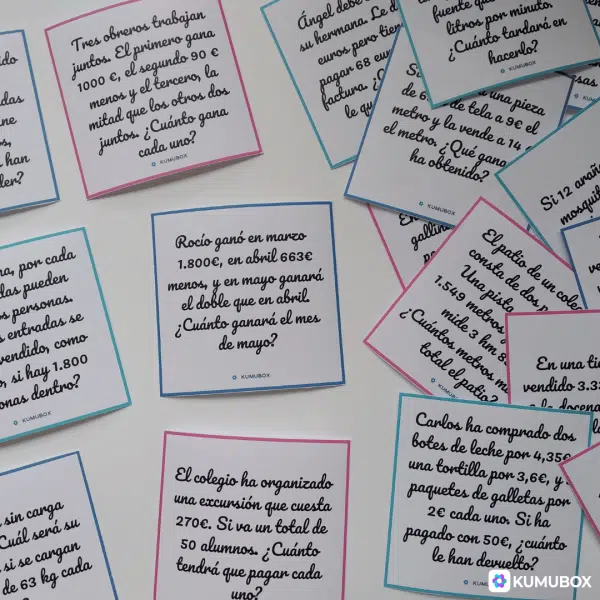 Tres obreros trabajan
juntos. El primero gana
1000 €, el segundo 90 €
menos y el tercero, la
mitad que los otros dos
juntos. ¿Cuánto gana
cada uno?
KUMUBOX
Ángel debe
su hermana. Le d
euros, pero tien
pagar 68 eur
factura. ¿C
le qu
fuente qu
litros por minuto.
¿Cuánto tardará en
hacerlo?
KUMUBOX
una pieza
de 6 de tela a 9€ el
metro y la vende a 14
el metro, ¿Qué gana
ha obtenido?
KUMUBOX
Si 12 arañ
mosqui
das
han
der?
a, por cada
das pueden
personas.
entradas se
vendido, como
, si hay 1.800
onas dentro?
KUMUBOX
Rocío ganó en marzo
1.800€, en abril 663€
menos, y en mayo ganará
el doble que en abril.
¿Cuánto ganará el mes
de mayo?
KUMUBOX
gallin
El patio de un coleg
consta de dos p
Una pista
1.549 metros y
mide 3 hm 8
¿Cuántos metros m
total el patio?
KUMUBOX
En una ti
vendido 3.33
la docena
sin carga
Cuál será su
si se cargan
de 63 kg cada
El colegio ha organizado
una excursión que cuesta
270€. Si va un total de
50 alumnos. ¿Cuánto
tendrá que pagar cada
uno?
Carlos ha comprado dos
botes de leche por 4,35€
una tortilla por 3,6€, y
paquetes de galletas por
2€ cada uno. Si ha
pagado con 50€, ¿cuánto
le han devuelto?
KUMUBOX